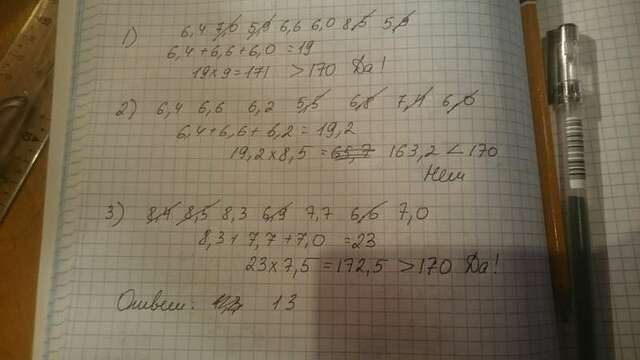 1) 6,4 7,0 5,9 6,6 6,0 8,5 5,9
6,4 + 6,6 + 6,0 = 19
19 x 9 = 171 > 170 Да!
2) 6,4 6,6 6,2 5,5 6,8 7,4 6,0
6,4 + 6,6 + 6,2 = 19,2
19,2 x 8,5 = 65,7 163,2 < 170
Нет
3) 8,4 8,5 8,3 6,9 7,7 6,6 7,0
8,3 + 7,7 + 7,0 = 23
23 x 7,5 = 172,5 > 170 Да!
Ответ: 13